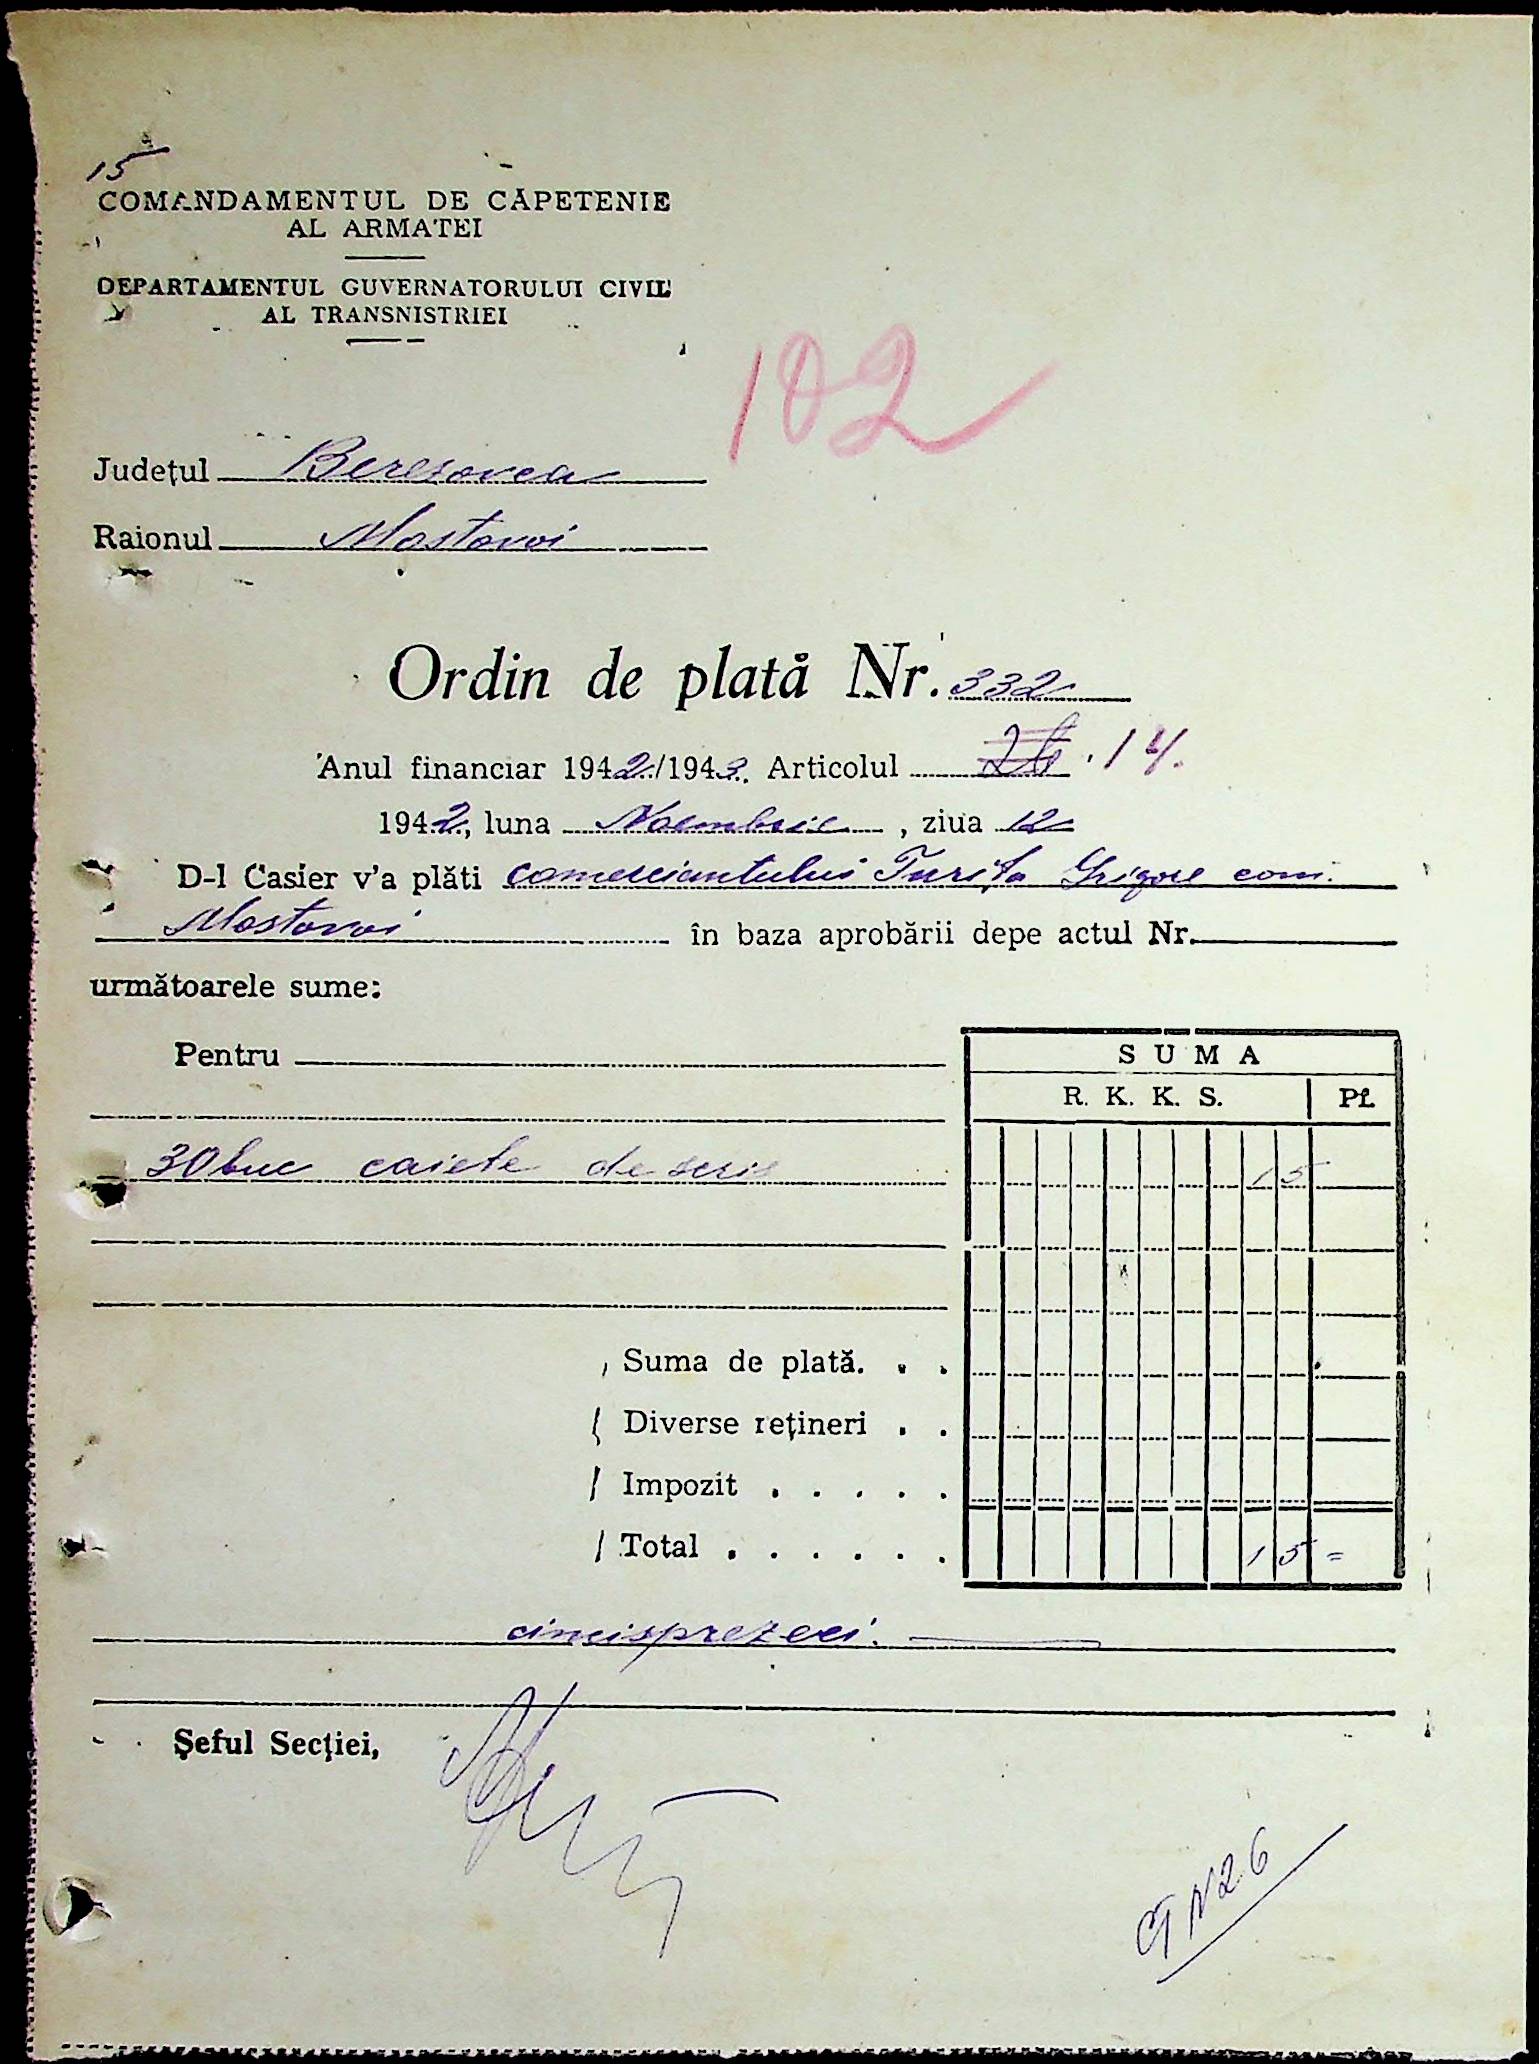 15
COMANDAMENTUL DE CĂPETENIE
AL ARMATEI
DEPARTAMENTUL GUVERNATORULUI CIVIL
AL TRANSNISTRIEI
102
Județul Beresovca
Raionul Mostovoi
Ordin de plată Nr. 332
Anul financiar 1942/1943. Articolul 26 . 14.
1942, luna Noembrie , ziua 12
D-l Casier v'a plăti comerciantului Turița Grigore com.
Mostovoi în baza aprobării depe actul Nr.
următoarele sume:
Pentru
SUMA
R. K. K. S. Pf.
30 buc caiete de scris 15
Suma de plată. . .
Diverse rețineri . .
Impozit . . . . .
Total . . . . . . 15 =
cincisprezeci.
Șeful Secției,
26